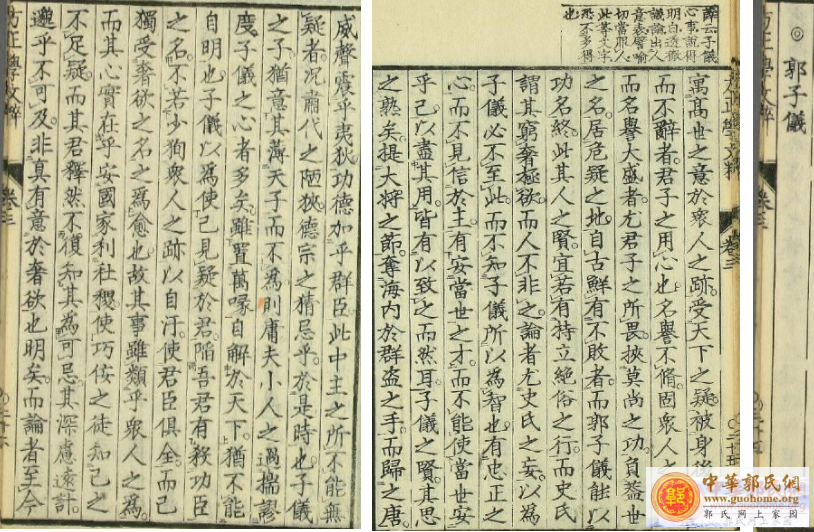 ◎郭子儀
薛云子儀
心事說得
明白透徹
議論出人
意表譬喻
切當服人
此等文字
恐不多得
也
寓高世之意於衆人之跡受天下之疑被身後
而不辭者君子之用心也名譽不脩固衆人之
而名譽大盛者尤君子之所畏挾莫尚之功負蓋世
之名居危疑之地自古鮮有不敗者而郭子儀能以
功名終此其人之賢宜若有持立絕俗之行而史氏
謂其窮奢極欲而人不非之論者尤史氏之妄以為
子儀必不至此而不知子儀所以為智也有忠正之
心而不見信於主有安當世之才而不能使當世安
乎己以盡其用皆有以致之而然耳子儀之賢其思
之熟矣提大將之節奪海内於群盗之手而歸之唐
威聲震乎夷狄功德加乎群臣此中主之所不能無
疑者况肅代之陋狹德宗之猜忌乎於是時也子儀
之子猶意其薄天子而不為則庸夫小人之過揣謬
度子儀之心者多矣雖置萬喙自解於天下猶不能
自明也子儀以為使己見疑於君陷吾君有殺功臣
之名不若少狥衆人之跡以自汙使君臣俱全而己
獨受奢欲之名之為愈也故其事雖類乎衆人之為
而其心實在乎安國家利社稷使巧佞之徒知己之
不足疑而其君釋然不復知其為可忌其深慮遠計
邈乎不可及非真有意於奢欲也明矣而論者至今
卷三
中華郭氏網
www.guohome.org
郭氏网上家园